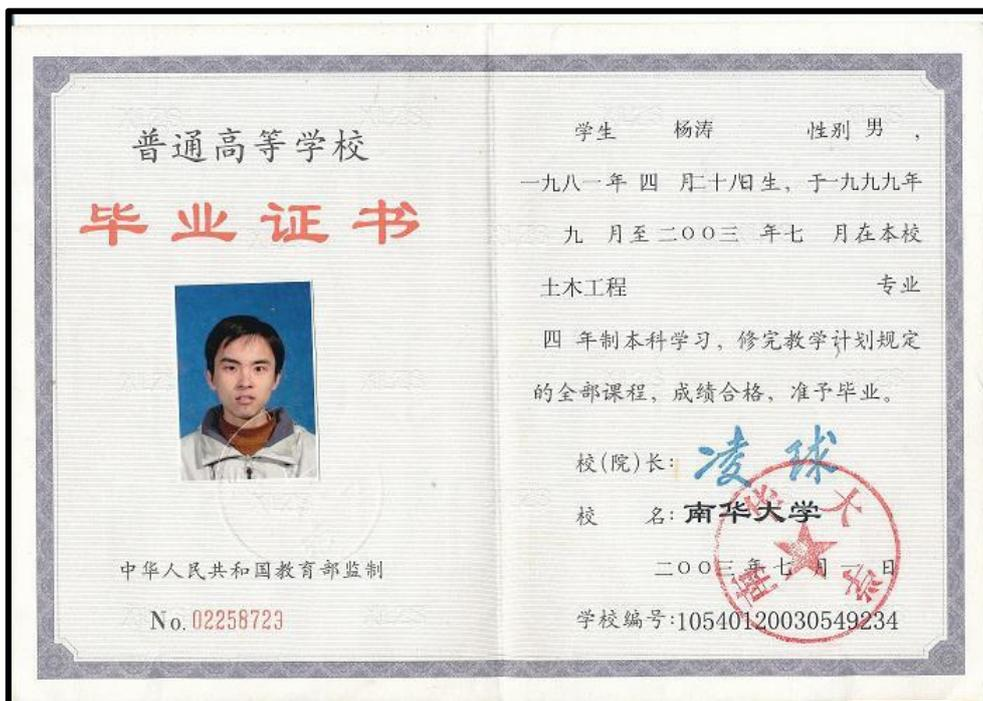 普通高等学校
毕业证书
中华人民共和国教育部监制
No. 02258723
学生 杨涛 性别 男，
一九八一年 四 月二十八日生，于一九九九年
九 月至二〇〇三 年七 月在本校
土木工程 专业
四 年制本科学习，修完教学计划规定
的全部课程，成绩合格，准予毕业。
校(院)长：凌球
校 名：南华大学
二〇〇三年七月一日
学校编号:10540120030549234
南华大学